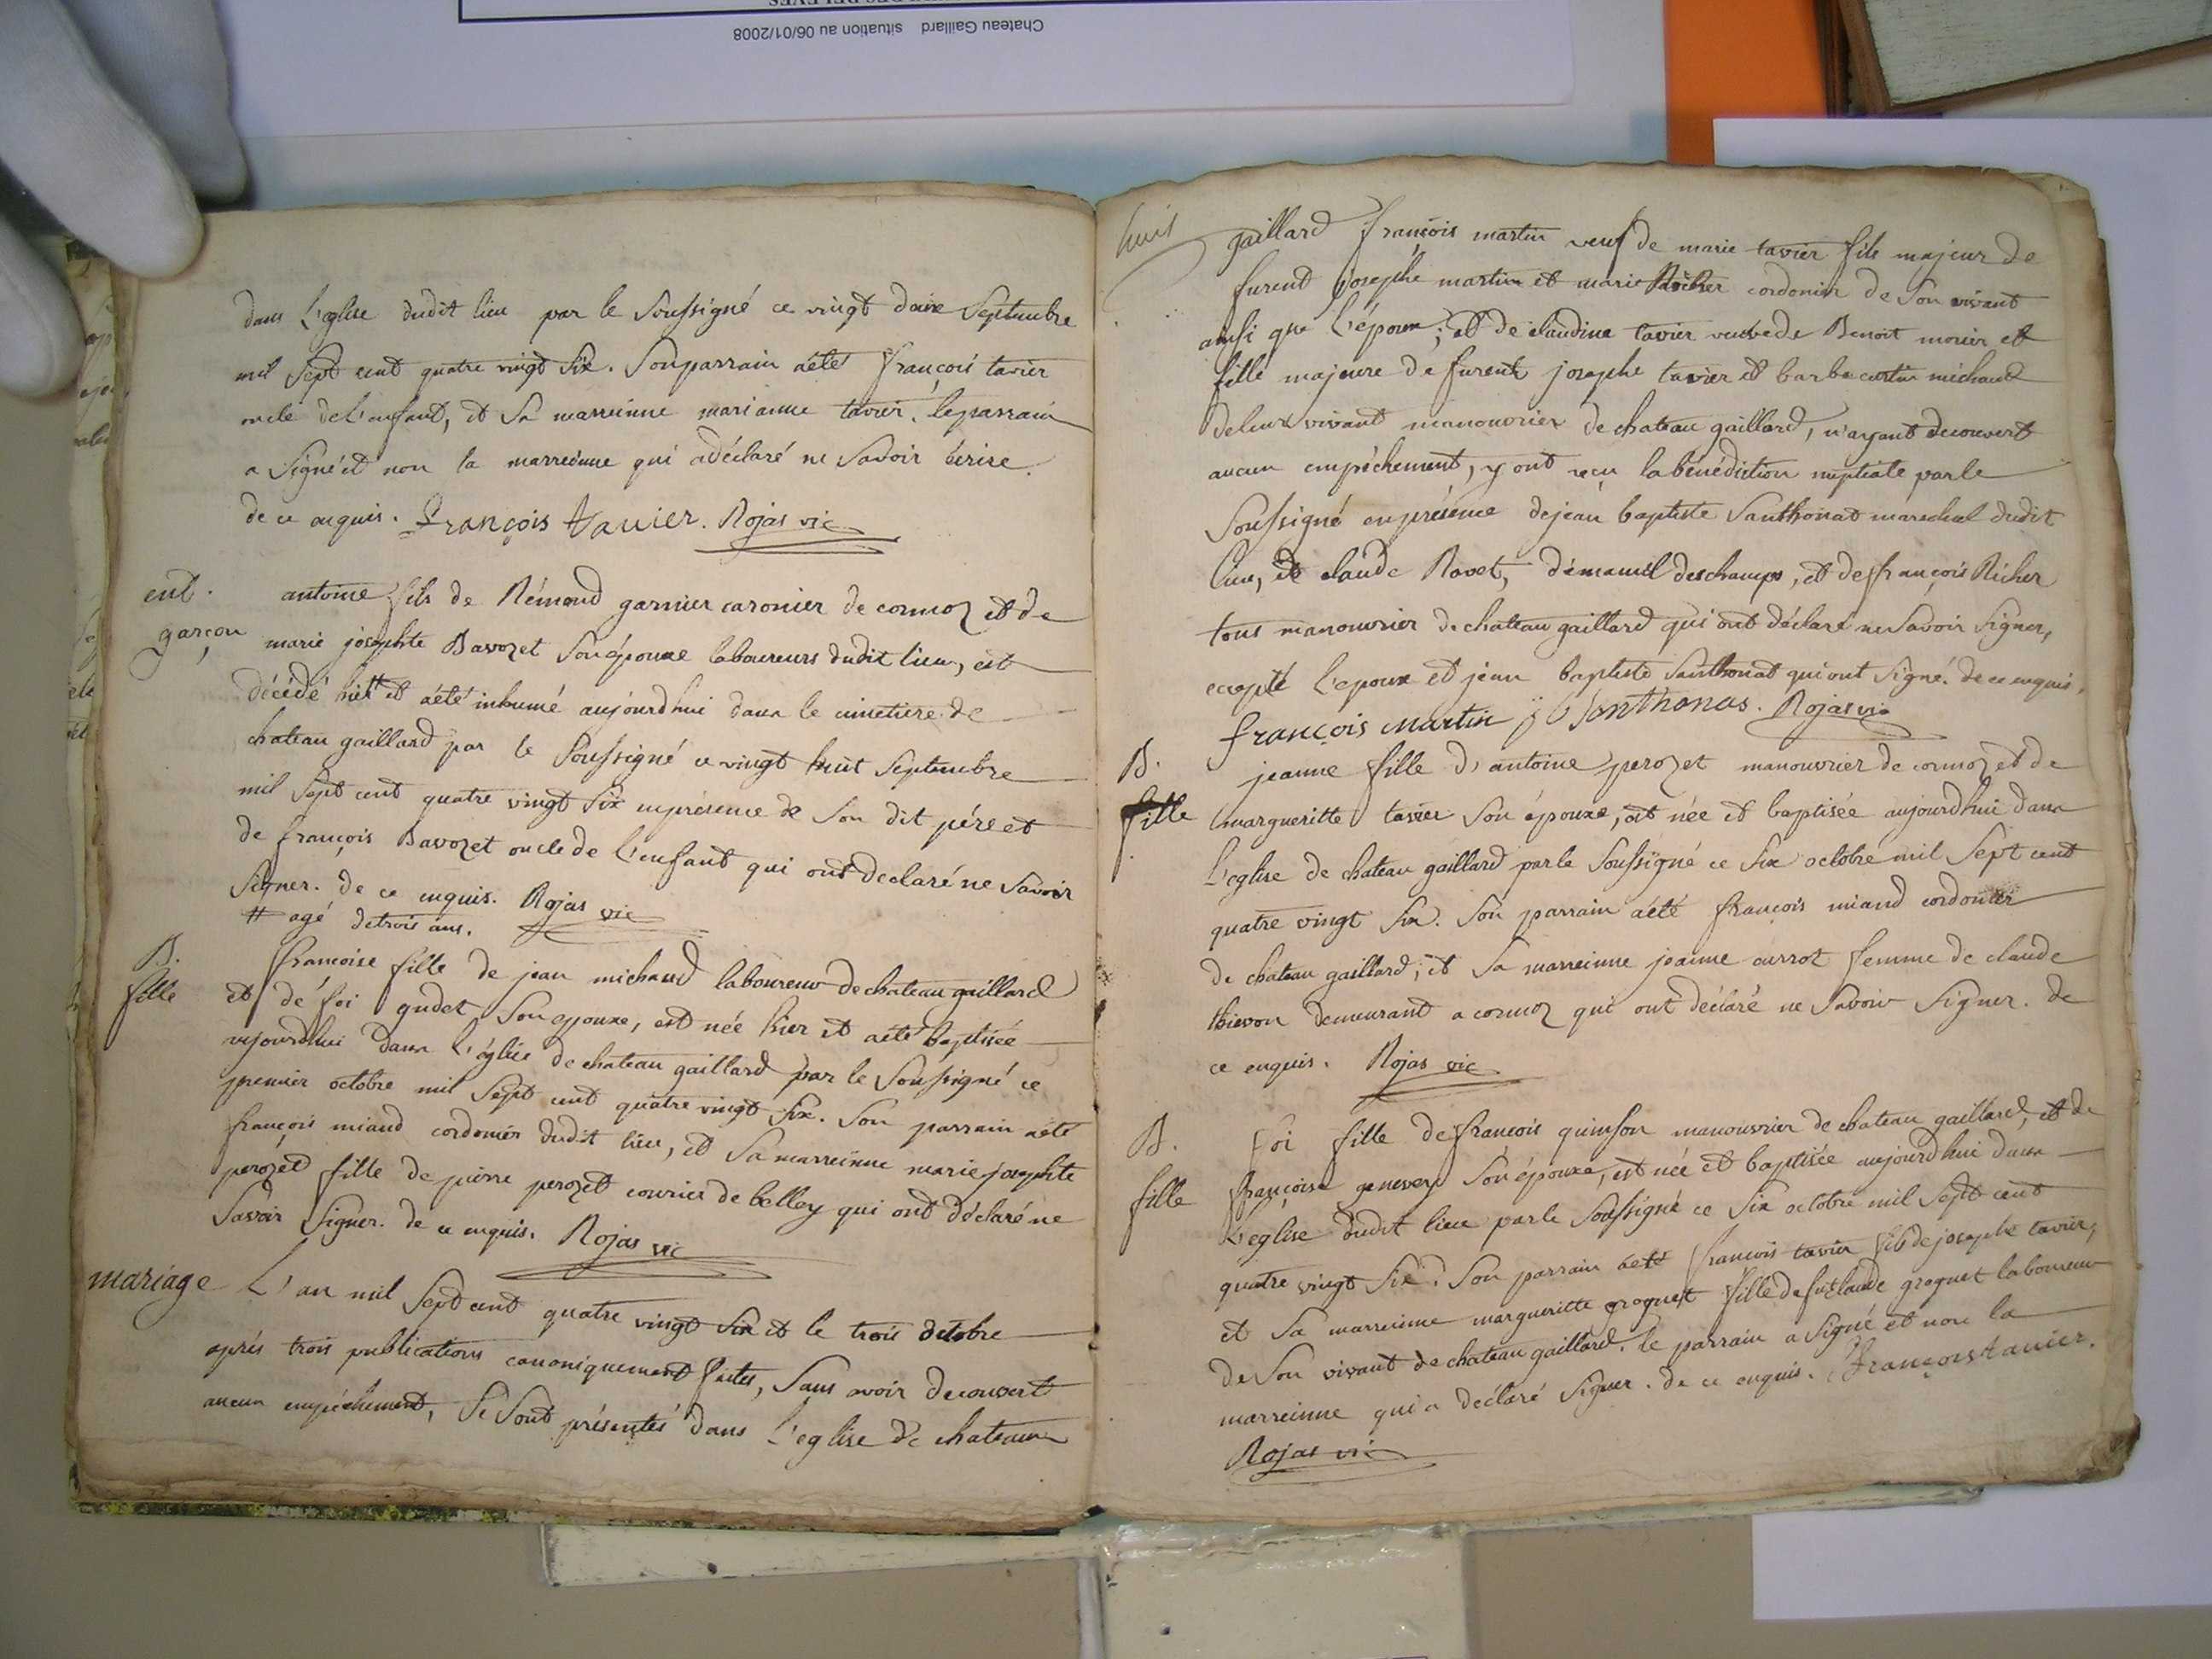 Chateau Gaillard situation au 06/01/2008
dans L'eglise dudit lieu par le Soussigné ce vingt deux Septembre
mil Sept cent quatre vingt Six. Son parrain aété françois tavier
oncle de L'enfant, et Sa marreinne marianne tavier. le parrain
a Signé et non la marreinne qui adéclaré ne Savoir écrire.
de ce enquis. François Tavier. Rojas vic
ent.
garçon
antoine fils de Rémond garnier caronier de cormoz et de
marie josephte Bavozet Son épouxe laboureurs dudit lieu, est
décédé hier # et aété inhumé aujourdhui dans le cimetiere de
chateau gaillard par le Soussigné ce vingt huit Septembre
mil Sept cent quatre vingt Six en présence de Son dit pére et
de françois Bavozet oncle de L'enfant qui ont declaré ne Savoir
Signer. de ce enquis. Rojas vic
# agé de trois ans.
B.
fille
francoise fille de jean michaud laboureur de chateau gaillard
et de foi gudet Son epouxe, est née hier et aété baptisée
aujourdhui dans L'église de chateau gaillard par le Soussigné ce
premier octobre mil Sept cent quatre vingt Six. Son parrain aété
françois miand cordonier dudit lieu, et Sa marreinne marie josephte
perozet fille de pierre perozet courier de belley qui ont déclaré ne
Savoir Signer. de ce enquis. Rojas vic
mariage
L'an mil Sept cent quatre vingt Six et le trois octobre
aprés trois publications canoniquement faites, Sans avoir decouvert
aucun empéchement, Se Sont présentés dans L'eglise de chateau
huit
gaillard françois martin veuf de marie tavier fils majeur de
furent josephe martin et marie Richer cordonier de Son vivant
ainsi que L'époux; et de claudine tavier veuve de Benoit monier et
fille majeure de furent josephe tavier et barbe michaud
de leur vivant manouvrier de chateau gaillard, n'ayant decouvert
aucun empéchement, y ont reçu la bénédiction nuptiale par le
Soussigné en présence de jean baptiste Santhonat marechal dudit
lieu, de claude Rovet, démanuel deschamps, et de françois Richer
tous manouvrier de chateau gaillard qui ont déclaré ne Savoir Signer,
excepté L'epoux et jean baptiste Santhonat qui ont Signé. de ce enquis.
françois Martin j b Santhonas. Rojas vic
B.
fille
jeanne fille d'antoine perozet manouvrier de cormoz et de
margueritte tavier Son épouxe, est née et baptisée aujourdhui dans
L'eglise de chateau gaillard par le Soussigné ce Six octobre mil Sept cent
quatre vingt Six. Son parrain aété françois miand cordonier
de chateau gaillard; et Sa marreinne jeanne currot femme de claude
thievon demeurant a cormoz qui ont déclaré ne Savoir Signer. de
ce enquis. Rojas vic
B.
fille
foi fille de françois quinson manouvrier de chateau gaillard, et de
françoise genevey Son épouxe, est née et baptisée aujourdhui dans
L'eglise dudit lieu par le Soussigné ce Six octobre mil Sept cent
quatre vingt Six. Son parrain aété francois tavier fils de josephe tavier,
et Sa marreinne margueritte groguet fille de fut claude groguet laboureur
de Son vivant de chateau gaillard. le parrain a Signé et non la
marreinne qui a déclaré Signer. de ce enquis. François tavier.
Rojas vic